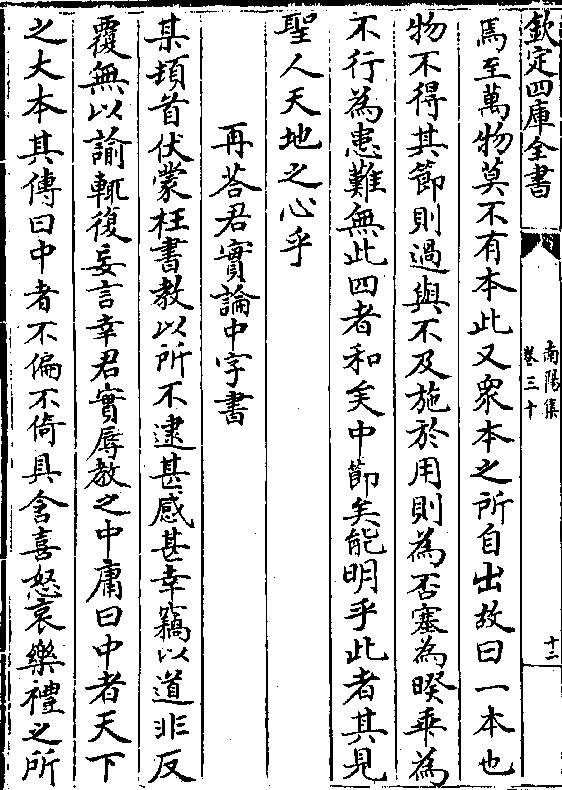 欽定四庫全書
南陽集
卷三十
十二
焉至萬物莫不有本此又衆本之所自出故曰一本也
物不得其節則過與不及施於用則為否塞為暌乖為
不行為患難無此四者和矣中節矣能明乎此者其見
聖人天地之心乎
再答君實論中字書
某頓首伏蒙枉書教以所不逮甚感甚幸竊以道非反
覆無以諭輒復妄言幸君實辱教之中庸曰中者天下
之大本其傳曰中者不偏不倚具含喜怒哀樂禮之所